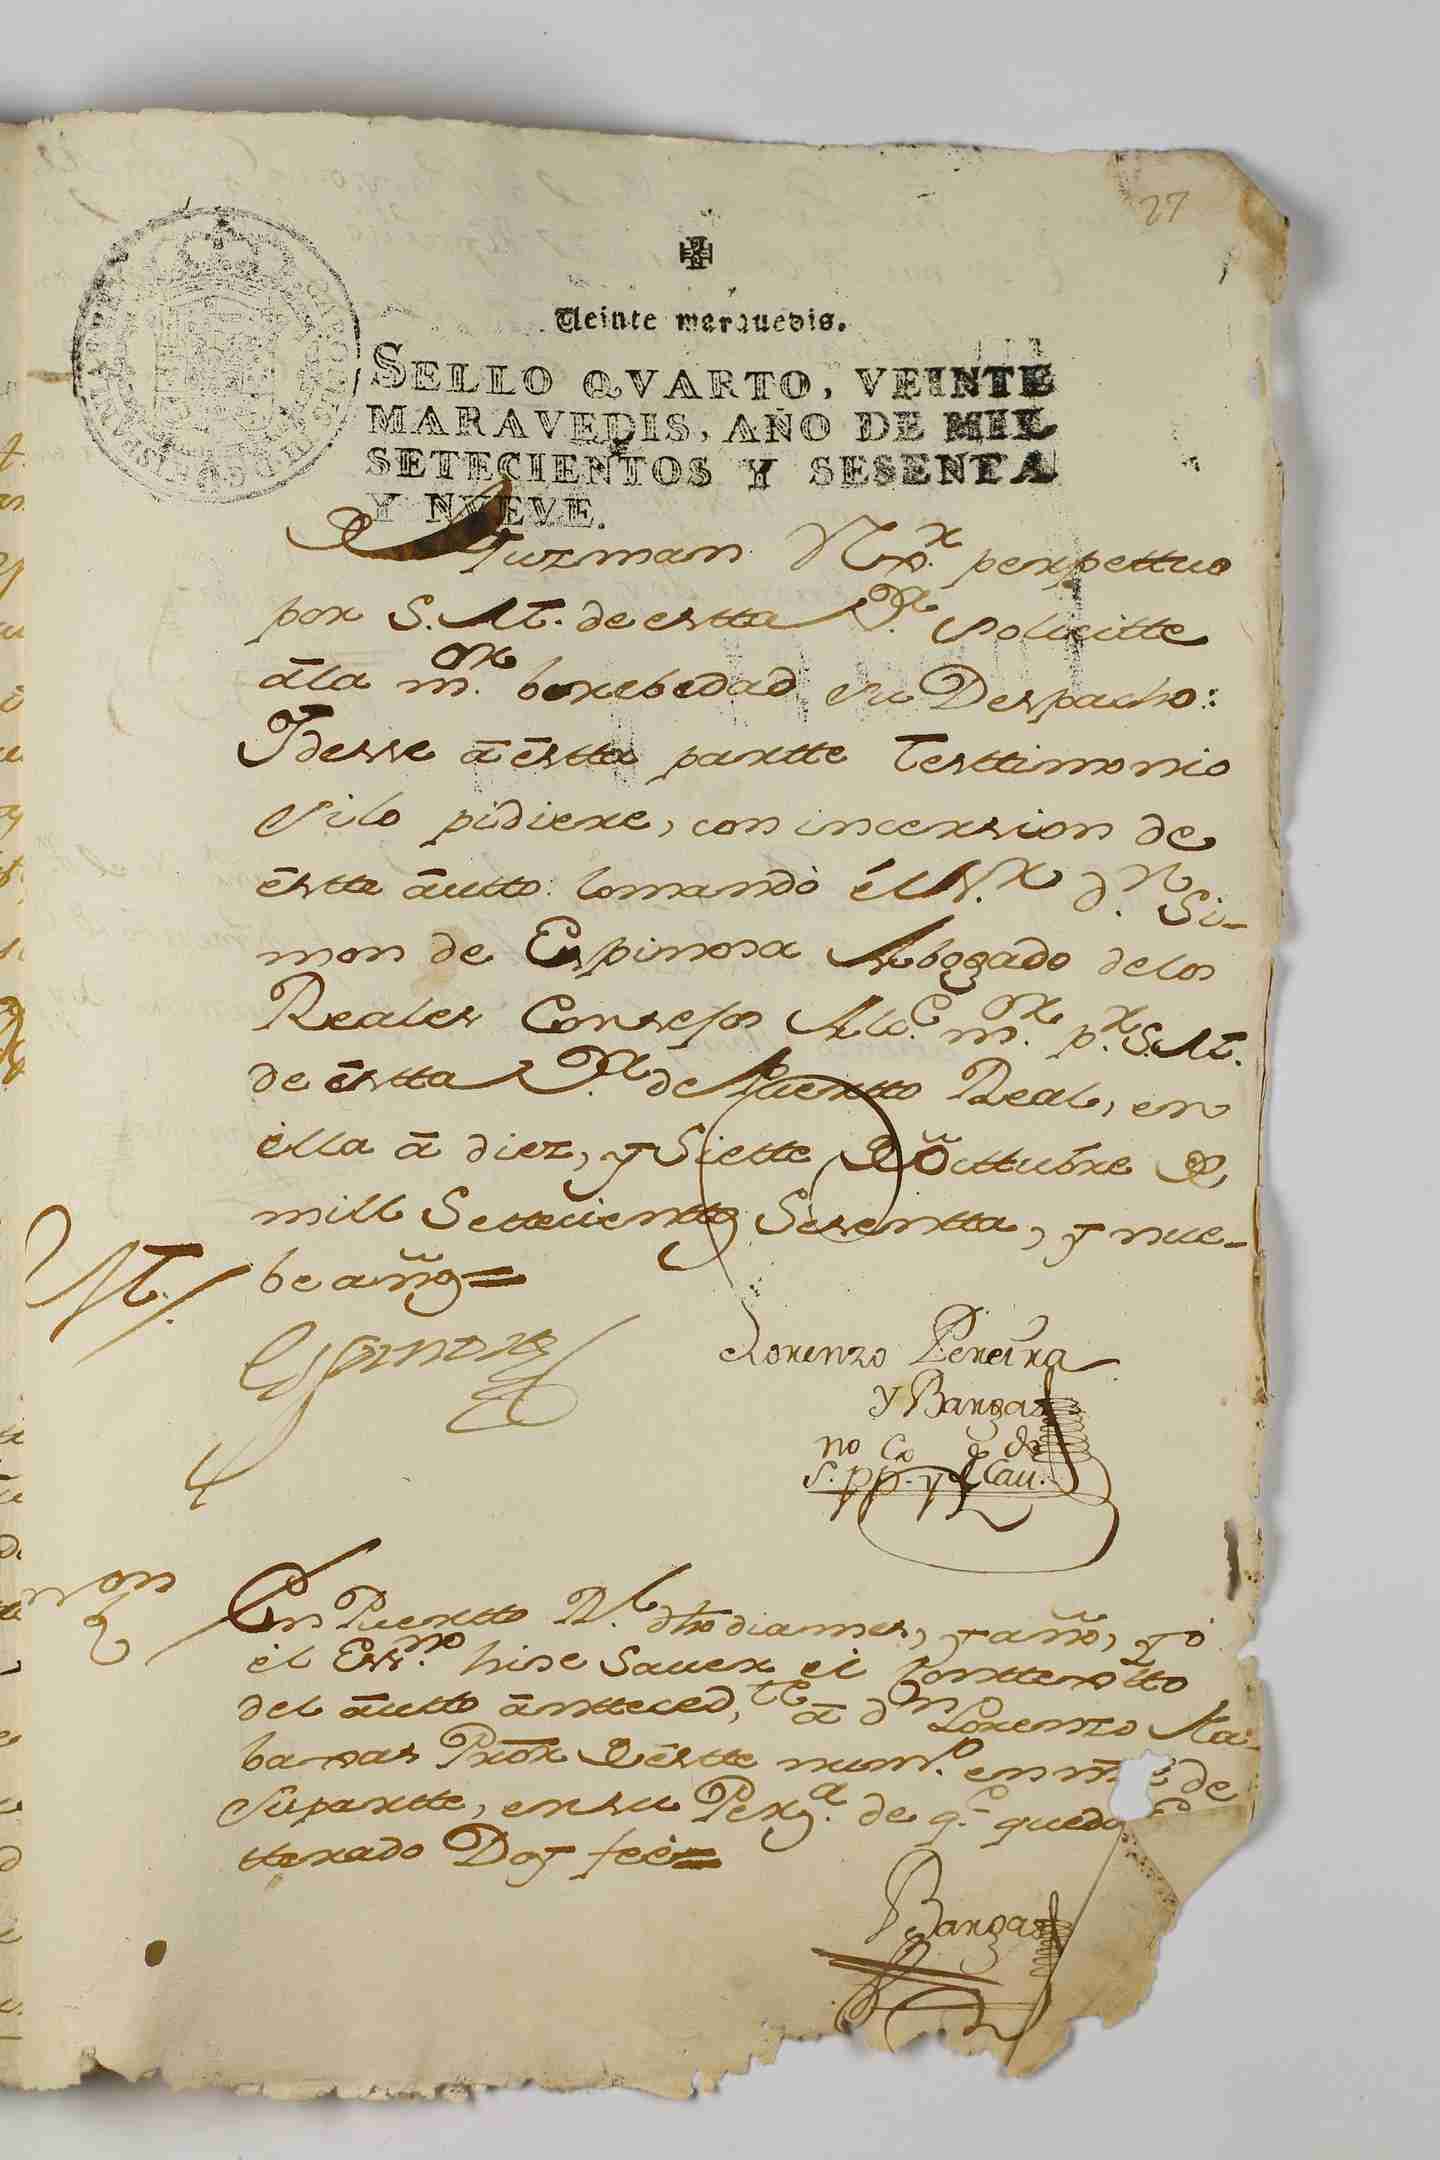 27
Veinte maravedis.
SELLO QVARTO, VEINTE
MARAVEDIS, AÑO DE MIL
SETECIENTOS Y SESENTA
Y NVEVE.
Guzman perpettuo
por S. M. de estta V.ª solicitte
â la m.or brebedad su Despacho:
Y desse â êstta partte Testtimonio
si lo pidiere, con incersion de
êstte âutto: lo mandó él S.r d.n Si-
mon de Espinosa Abogado delos
Reales Consejos Alc.e m.or p.r S. M.
de êstta V.ª de Puertto Real, en
ella â diez, y Siette de Octtubre de
mill Settecienttos Sesentta, y nue-
be años=
M./
Espinosa
Lorenzo Pereira
y Banzas
no
s. pp. y Cau.
non
En Puertto R.l dho dia mes, y año, yo
el Ess.no hise Saver el Conttenido
del âutto ânttezed.te â d.n Lorenzo Ra-
banas Pror de êstte num.o en de
su partte, en su Pers.a de q.e quedo
tterado Doy fee=
Banzas